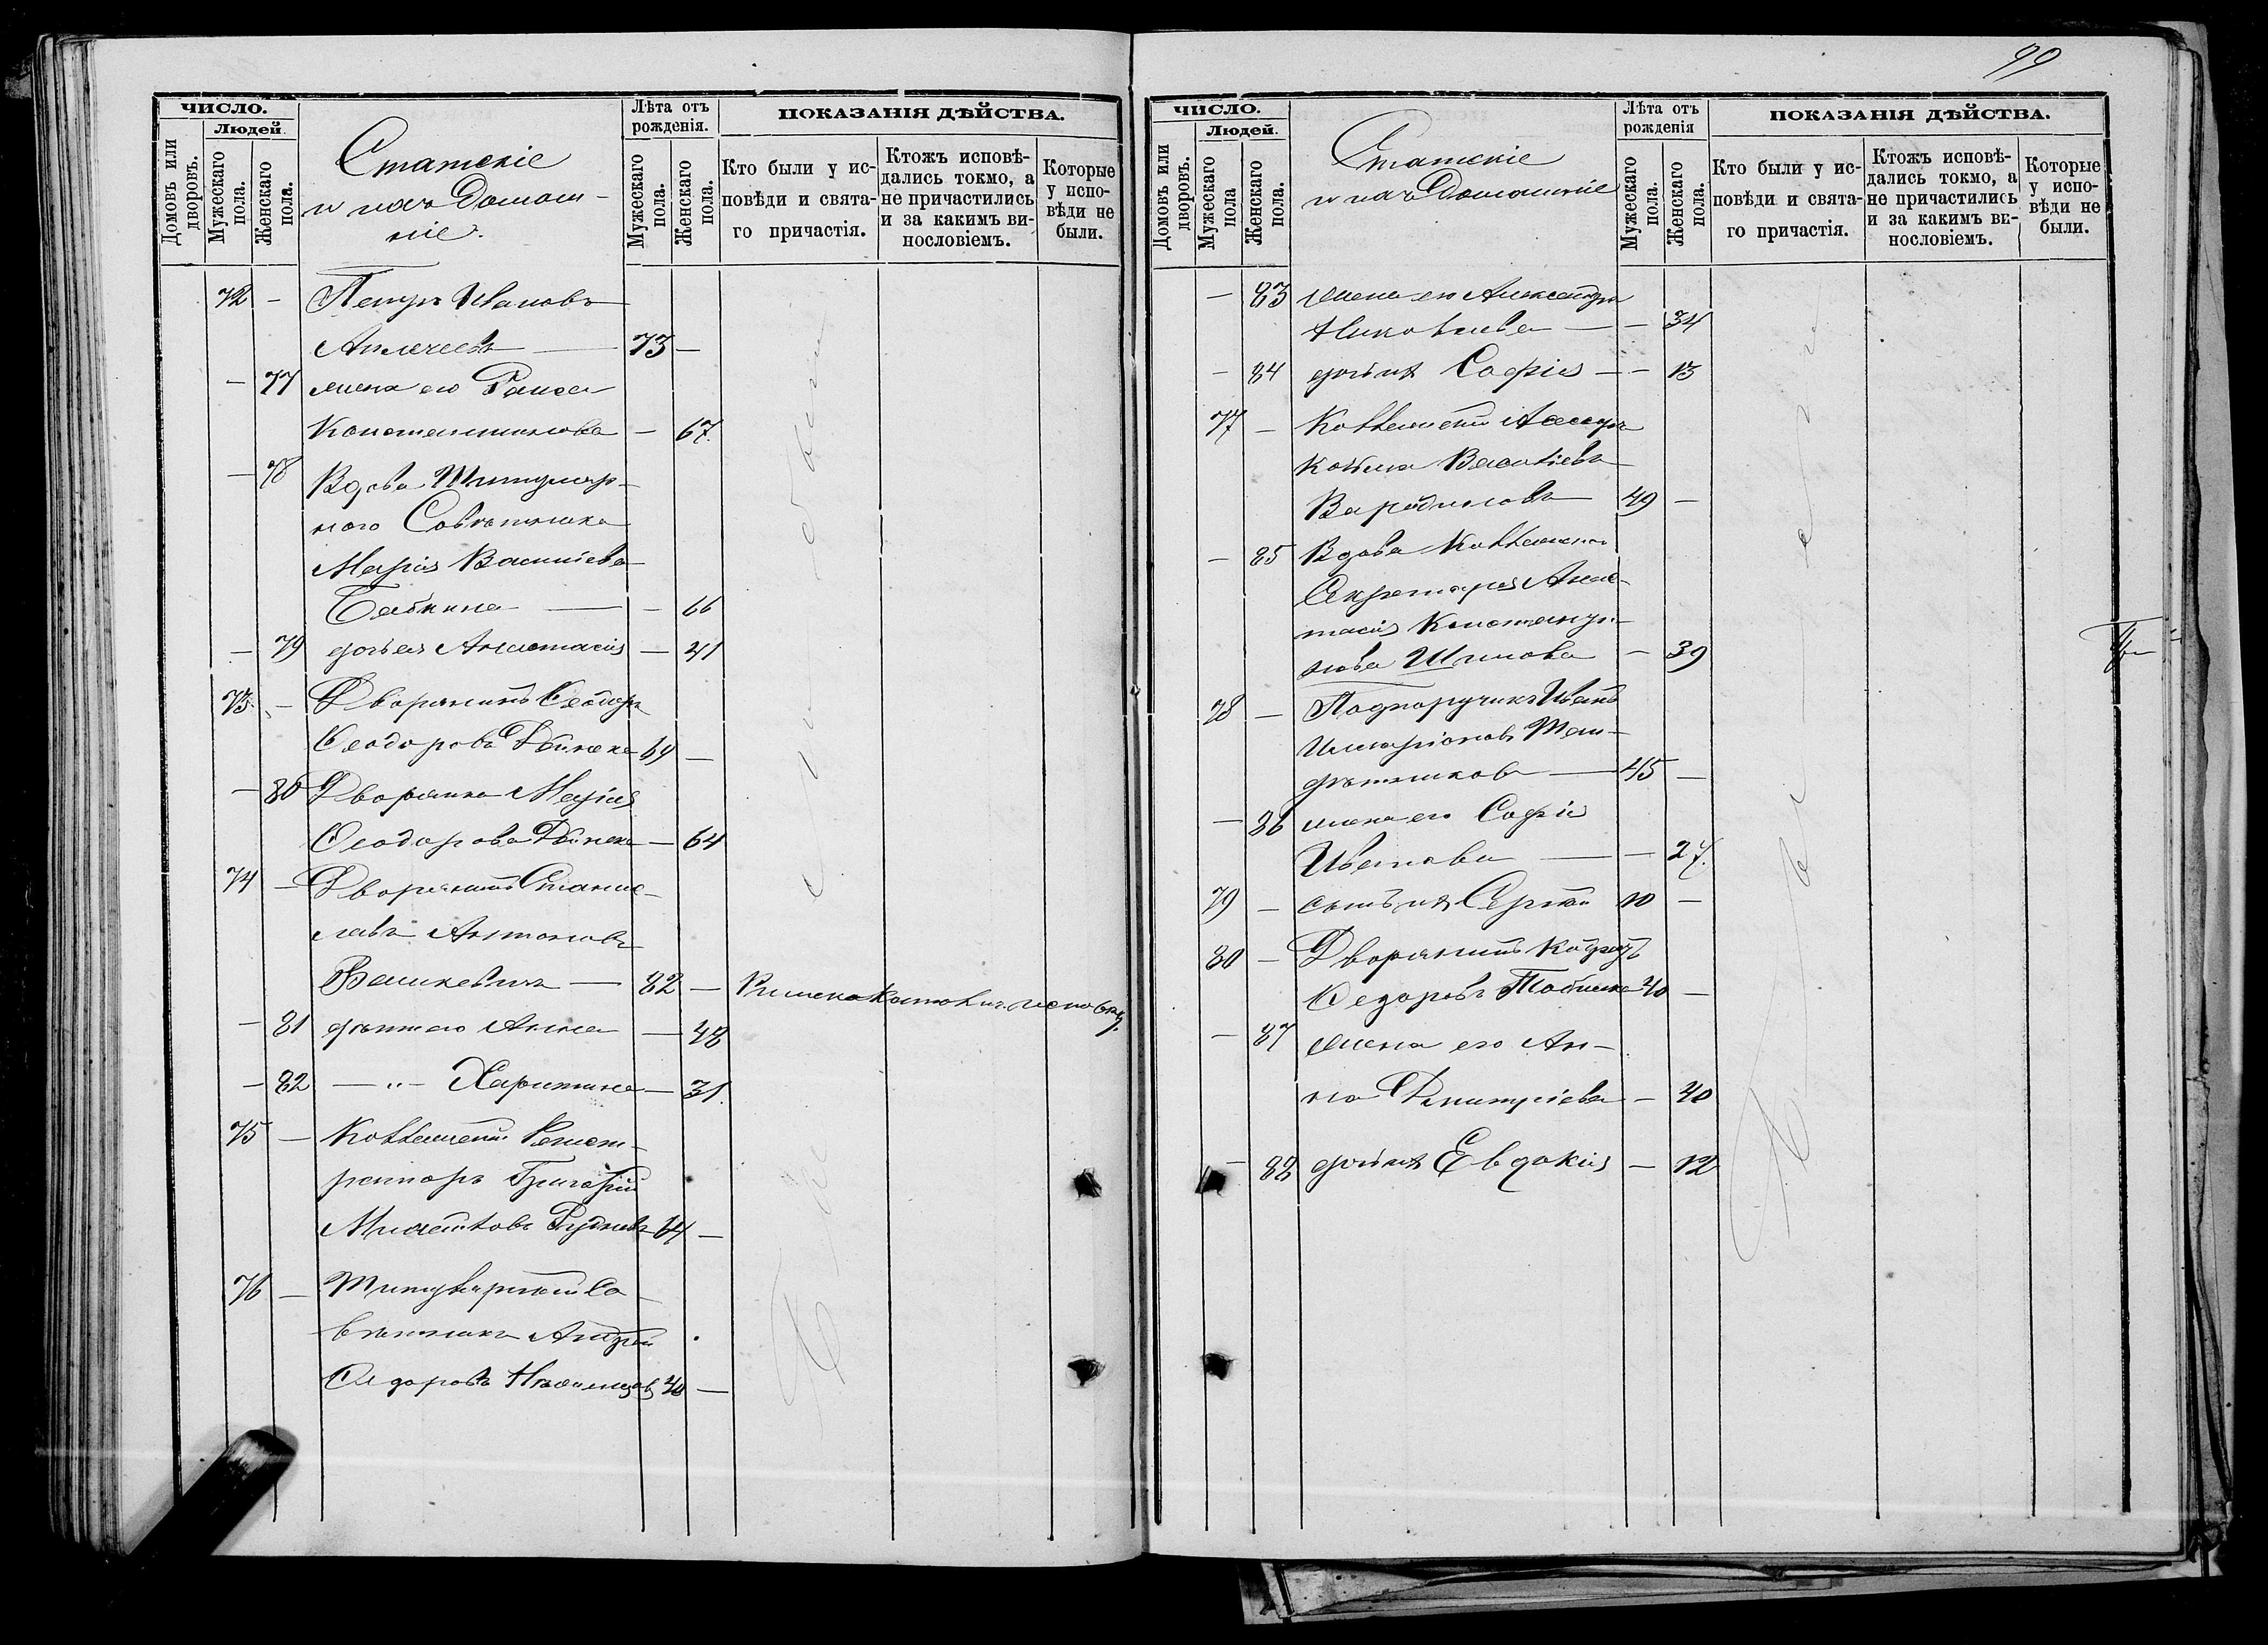 99
ЧИСЛО.
Людей.
Домовъ или дворовъ.
Мужескаго пола.
Женскаго пола.
Статскіе
и ихъ Домаш-
ніе.
Лѣта отъ рожденія.
Мужескаго пола.
Женскаго пола.
ПОКАЗАНІЯ ДѢЙСТВА.
Кто были у ис-
повѣди и свята-
го причастія.
Ктожъ исповѣ-
дались токмо, а
не причастились
и за какимъ ви-
нословіемъ.
Которые
у испо-
вѣди не
были.
72 — Петръ Ивановъ
73 —
— 77 жена его Раиса
Константинова — 67.
— 78 Вдова Титуляр-
ного Совѣтника
Марія Васильева
— 66
— 79 дочь ея Анастасія — 41
73. — Дворянинъ Ѳеодоръ
Ѳеодоровъ 69 —
— 80 Дворянка Марія
Ѳеодорова — 64
74 — Дворянинъ Станис-
лавъ Антоновъ
— 82 — Римско Католич. исповѣд.
— 81 дѣти его Анна — 48
— 82 — " — Харитина — 31.
75 — Коллежскій Регист-
раторъ Григорій
Рудневъ 64 —
76 — Титулярный Со-
вѣтникъ Андрей
Ѳедоровъ 40 —
ЧИСЛО.
Людей.
Домовъ или дворовъ.
Мужескаго пола
Женскаго пола.
Статскіе
и ихъ Домашніе
Лѣта отъ рожденія
Мужескаго пола.
Женскаго пола.
ПОКАЗАНІЯ ДѢЙСТВА.
Кто были у ис-
повѣди и свята-
го причастія.
Ктожъ исповѣ-
дались токмо, а
не причастились
и за какимъ ви-
нословіемъ.
Которые
у испо-
вѣди не
были.
— 83 жена его Александра
— 34
— 84 дочь ихъ Софія — 13
77 — Коллежскій Асесоръ
Козьма Васильевъ
49 —
— 85 Вдова Коллежскаго
Секретаря Анас-
тасія Константи-
нова Шилова — 39
78 — Подпоручикъ Иванъ
Иларіоновъ
45 —
— 86 жена его Софія
Иванова — 27.
79 — сынъ ихъ Сергѣй 10 —
80 — Дворянинъ
Ѳедоровъ 40 —
— 87 жена его Ан-
на Дмитріева — 40
— 88 дочь ихъ Евдокія — 12